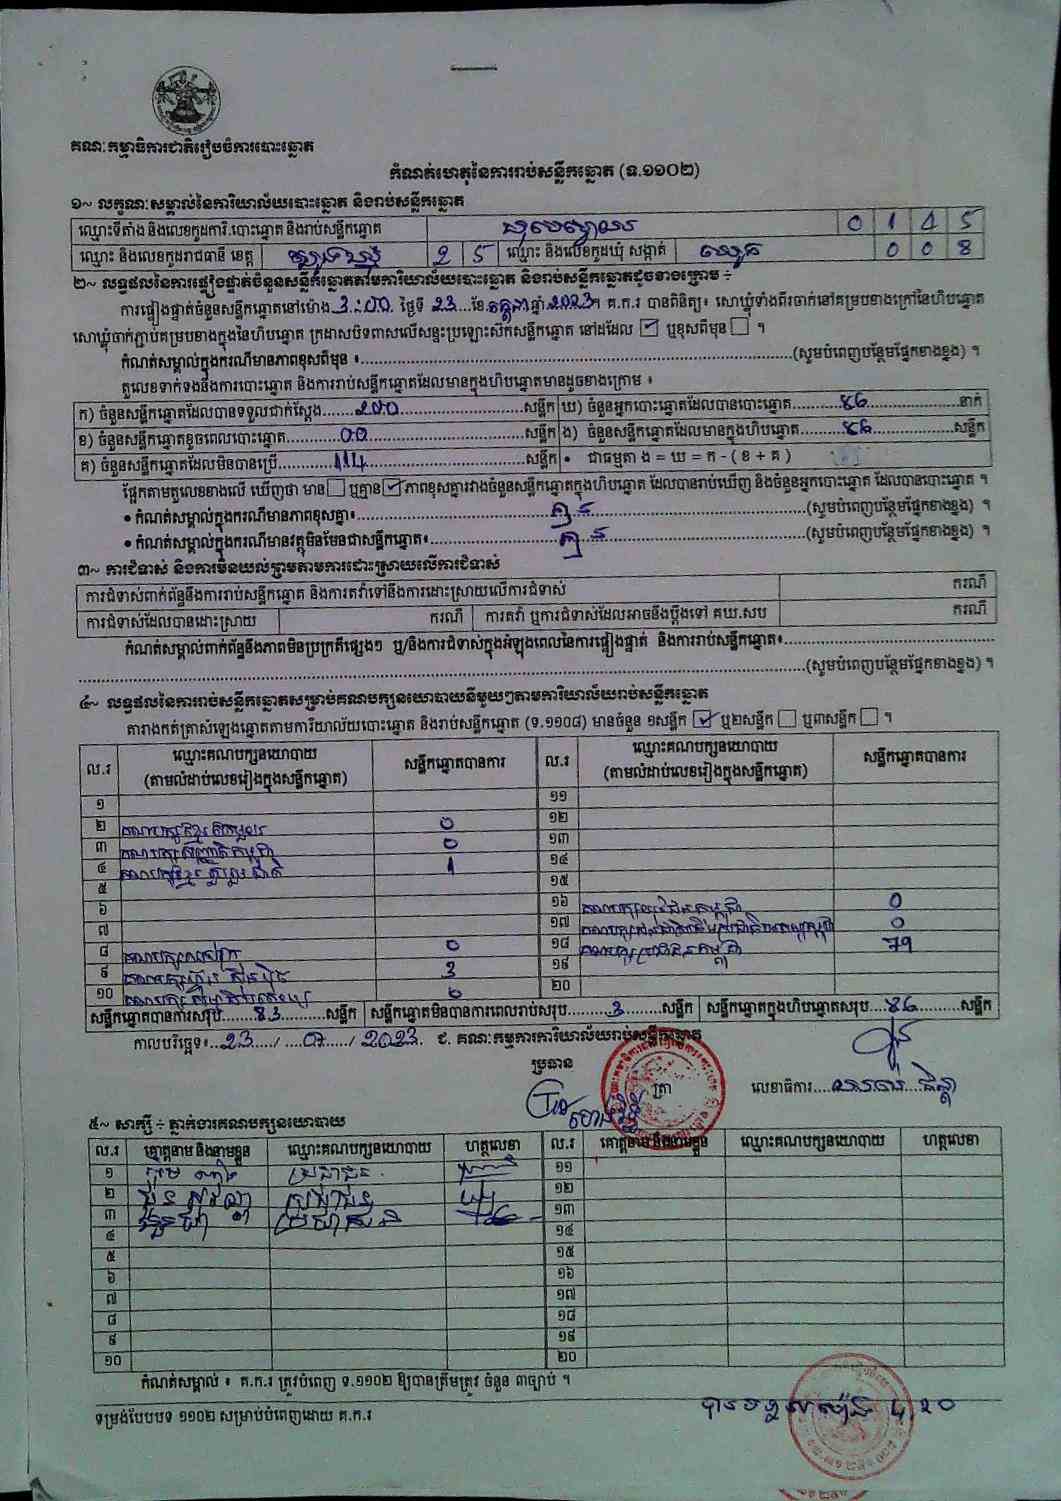 គណៈកម្មាធិការជាតិរៀបចំការបោះឆ្នោត
កំណត់ហេតុនៃការរាប់សន្លឹកឆ្នោត (ទ.១១០២)
១~ លក្ខណៈសម្គាល់នៃការិយាល័យបោះឆ្នោត និងរាប់សន្លឹកឆ្នោត
ឈ្មោះទីតាំង និងលេខកូដការិ.បោះឆ្នោត និងរាប់សន្លឹកឆ្នោត 0 1 4 5
ឈ្មោះ និងលេខកូដរាជធានី ខេត្ត 2 5 ឈ្មោះ និងលេខកូដឃុំ សង្កាត់ 0 0 8
២~ លទ្ធផលនៃការផ្ទៀងផ្ទាត់ចំនួនសន្លឹកឆ្នោតតាមការិយាល័យបោះឆ្នោត និងរាប់សន្លឹកឆ្នោតដូចខាងក្រោម ÷
ការផ្ទៀងផ្ទាត់ចំនួនសន្លឹកឆ្នោតនៅម៉ោង 3:00 ថ្ងៃទី 23 ខែ កក្កដា ឆ្នាំ 2023 ។ គ.ក.រ បានពិនិត្យ៖ សោឃ្លុំទាំងពីរចាក់នៅគម្របខាងក្រៅនៃហិបឆ្នោត
សោឃ្លុំចាក់ភ្ជាប់គម្របខាងក្នុងនៃហិបឆ្នោត ក្រដាសបិទពាសលើសន្ទះប្រឡោះសឹកសន្លឹកឆ្នោត នៅដដែល ☑ ឬខុសពីមុន ☐ ។
កំណត់សម្គាល់ក្នុងករណីមានភាពខុសពីមុន ៖ (សូមបំពេញបន្ថែមផ្នែកខាងខ្នង) ។
តួលេខទាក់ទងនឹងការបោះឆ្នោត និងការរាប់សន្លឹកឆ្នោតដែលមានក្នុងហិបឆ្នោតមានដូចខាងក្រោម ៖
ក) ចំនួនសន្លឹកឆ្នោតដែលបានទទួលជាក់ស្តែង 200 សន្លឹក ឃ) ចំនួនអ្នកបោះឆ្នោតដែលបានបោះឆ្នោត 86 នាក់
ខ) ចំនួនសន្លឹកឆ្នោតខូចពេលបោះឆ្នោត 00 សន្លឹក ង) ចំនួនសន្លឹកឆ្នោតដែលមានក្នុងហិបឆ្នោត 86 សន្លឹក
គ) ចំនួនសន្លឹកឆ្នោតដែលមិនបានប្រើ 114 សន្លឹក • ជាធម្មតា ង = ឃ = ក - ( ខ + គ )
ផ្អែកតាមតួលេខខាងលើ ឃើញថា មាន ☐ ឬគ្មាន ☑ ភាពខុសគ្នារវាងចំនួនសន្លឹកឆ្នោតក្នុងហិបឆ្នោត ដែលបានរាប់ឃើញ និងចំនួនអ្នកបោះឆ្នោត ដែលបានបោះឆ្នោត ។
• កំណត់សម្គាល់ក្នុងករណីមានភាពខុសគ្នា៖ គ្មាន (សូមបំពេញបន្ថែមផ្នែកខាងខ្នង) ។
• កំណត់សម្គាល់ក្នុងករណីមានវត្ថុមិនមែនជាសន្លឹកឆ្នោត៖ គ្មាន (សូមបំពេញបន្ថែមផ្នែកខាងខ្នង) ។
៣~ ការជំទាស់ និងការមិនយល់ព្រមតាមការដោះស្រាយលើការជំទាស់
ការជំទាស់ពាក់ព័ន្ធនឹងការរាប់សន្លឹកឆ្នោត និងការតវ៉ាទៅនឹងការដោះស្រាយលើការជំទាស់ ករណី
ការជំទាស់ដែលបានដោះស្រាយ ករណី ការតវ៉ា ឬការជំទាស់ដែលអាចនឹងប្តឹងទៅ គឃ.សប ករណី
កំណត់សម្គាល់ពាក់ព័ន្ធនឹងភាពមិនប្រក្រតីផ្សេងៗ ឬ/និងការជំទាស់ក្នុងអំឡុងពេលនៃការផ្ទៀងផ្ទាត់ និងការរាប់សន្លឹកឆ្នោត៖
(សូមបំពេញបន្ថែមផ្នែកខាងខ្នង) ។
៤~ លទ្ធផលនៃការរាប់សន្លឹកឆ្នោតសម្រាប់គណបក្សនយោបាយនីមួយៗតាមការិយាល័យរាប់សន្លឹកឆ្នោត
តារាងកត់ត្រាសំឡេងឆ្នោតតាមការិយាល័យបោះឆ្នោត និងរាប់សន្លឹកឆ្នោត (ទ.១១០៨) មានចំនួន ១សន្លឹក ☑ ឬ២សន្លឹក ☐ ឬ៣សន្លឹក ☐ ។
ល.រ ឈ្មោះគណបក្សនយោបាយ (តាមលំដាប់លេខរៀងក្នុងសន្លឹកឆ្នោត) សន្លឹកឆ្នោតបានការ ល.រ ឈ្មោះគណបក្សនយោបាយ (តាមលំដាប់លេខរៀងក្នុងសន្លឹកឆ្នោត) សន្លឹកឆ្នោតបានការ
១ ១១
២ គណបក្ស 0 ១២
៣ គណបក្ស 0 ១៣
៤ គណបក្ស 1 ១៤
៥ ១៥
៦ ១៦ គណបក្ស 0
៧ ១៧ គណបក្ស 0
៨ គណបក្ស 0 ១៨ គណបក្សប្រជាជនកម្ពុជា 79
៩ គណបក្សហ៊្វុនស៊ិនប៉ិច 3 ១៩
១០ គណបក្ស ២០
សន្លឹកឆ្នោតបានការសរុប 83 សន្លឹក សន្លឹកឆ្នោតមិនបានការពេលរាប់សរុប 3 សន្លឹក សន្លឹកឆ្នោតក្នុងហិបឆ្នោតសរុប 86 សន្លឹក
កាលបរិច្ឆេទ៖ 23 / 07 / 2023 ជ. គណៈកម្មការការិយាល័យរាប់សន្លឹកឆ្នោត
ប្រធាន
ត្រា
លេខាធិការ
៥~ សាក្សី ÷ ភ្នាក់ងារគណបក្សនយោបាយ
ល.រ គោត្តនាម និងនាមខ្លួន ឈ្មោះគណបក្សនយោបាយ ហត្ថលេខា ល.រ គោត្តនាម និងនាមខ្លួន ឈ្មោះគណបក្សនយោបាយ ហត្ថលេខា
១ ប្រជាជន ១១
២ ប្រជាជន ១២
៣ ១៣
៤ ១៤
៥ ១៥
៦ ១៦
៧ ១៧
៨ ១៨
៩ ១៩
១០ ២០
កំណត់សម្គាល់ ៖ គ.ក.រ ត្រូវបំពេញ ទ.១១០២ ឱ្យបានត្រឹមត្រូវ ចំនួន ៣ច្បាប់ ។
ទម្រង់បែបបទ ១១០២ សម្រាប់បំពេញដោយ គ.ក.រ
បានទទួលម៉ោង 4:20